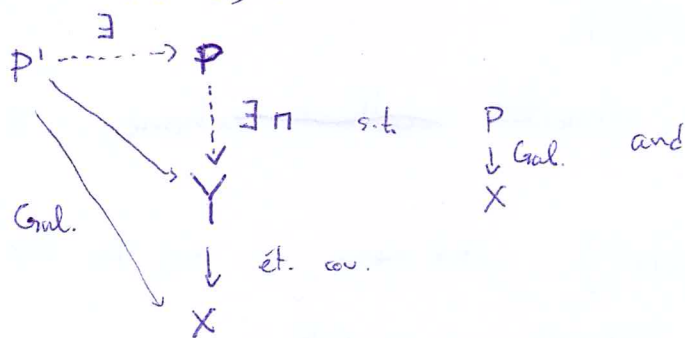 ∃
P' P
∃ π s.t. P
Gal. and
Y X
Gal.
ét. cov.
X